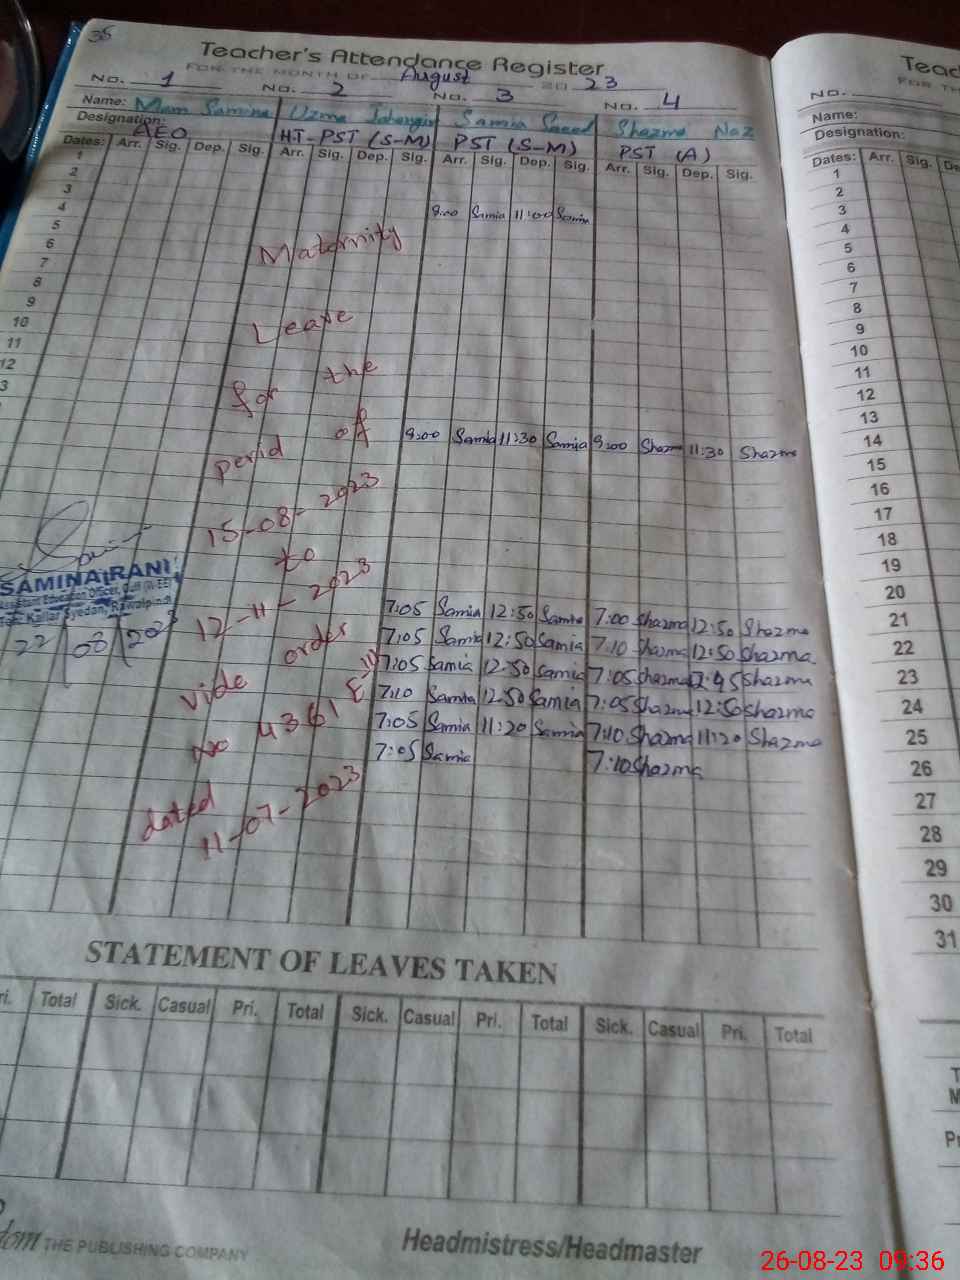 35
Teacher's Attendance Register
FOR THE MONTH OF August 20 23
No. 1 No. 2 No. 3 No. 4
Name: Mam Samina Uzma Jahangir Samia Saeed Shazma Naz
Designation: AEO HT-PST (S-M) PST (S-M) PST (A)
Dates: Arr. Sig. Dep. Sig. Arr. Sig. Dep. Sig. Arr. Sig. Dep. Sig. Arr. Sig. Dep. Sig.
1
2
3
4 8:00 Samia 11:00 Samia
5
6
7
8
9
10
11
12
3
Maternity
Leave
for the
perid of
15-08-2023
to
12-11-2023
vide order
No 4361 E-III
dated
11-07-2023
8:00 Samia 11:30 Samia 8:00 Shazma 11:30 Shazma
7:05 Samia 12:50 Samia 7:00 Shazma 12:50 Shazma
7:05 Samia 12:50 Samia 7:10 Shazma 12:50 Shazma
7:05 Samia 12:50 Samia 7:05 Shazma 12:45 Shazma
7:10 Samia 12:50 Samia 7:05 Shazma 12:50 Shazma
7:05 Samia 11:20 Samia 7:10 Shazma 11:20 Shazma
7:05 Samia 7:10 Shazma
SAMINA RANI
Assistant Education Officer,
Kallar Syedan, Rawalpindi
22/08/2023
STATEMENT OF LEAVES TAKEN
Pri. Total Sick. Casual Pri. Total Sick. Casual Pri. Total Sick. Casual Pri. Total
THE PUBLISHING COMPANY
Headmistress/Headmaster
Teac
FOR TH
No.
Name:
Designation:
Dates: Arr. Sig. De
1
2
3
4
5
6
7
8
9
10
11
12
13
14
15
16
17
18
19
20
21
22
23
24
25
26
27
28
29
30
31
T
M
Pr
26-08-23 09:36